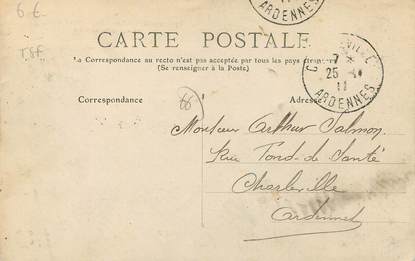 6 €
ARDENNES
CARTE POSTALE
La Correspondance au recto n'est pas acceptée par tous les pays étrangers
(Se renseigner à la Poste)
VILLE
7
25
11
ARDENNES
Correspondance
Adresse
Monsieur Arthur Salmon
Rue Fond-de Santé
Charleville
Ardennes